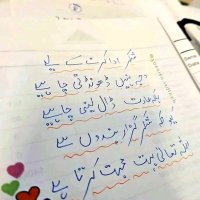 شکر ادا کرنے کے لیے
وجہ نہیں ڈھونڈنی چاہیے
بلکہ عادت ڈال لینی چاہیے
کیونکہ شکر گزار بندوں سے
اللہ تعالیٰ بہت محبت کرتا ہے